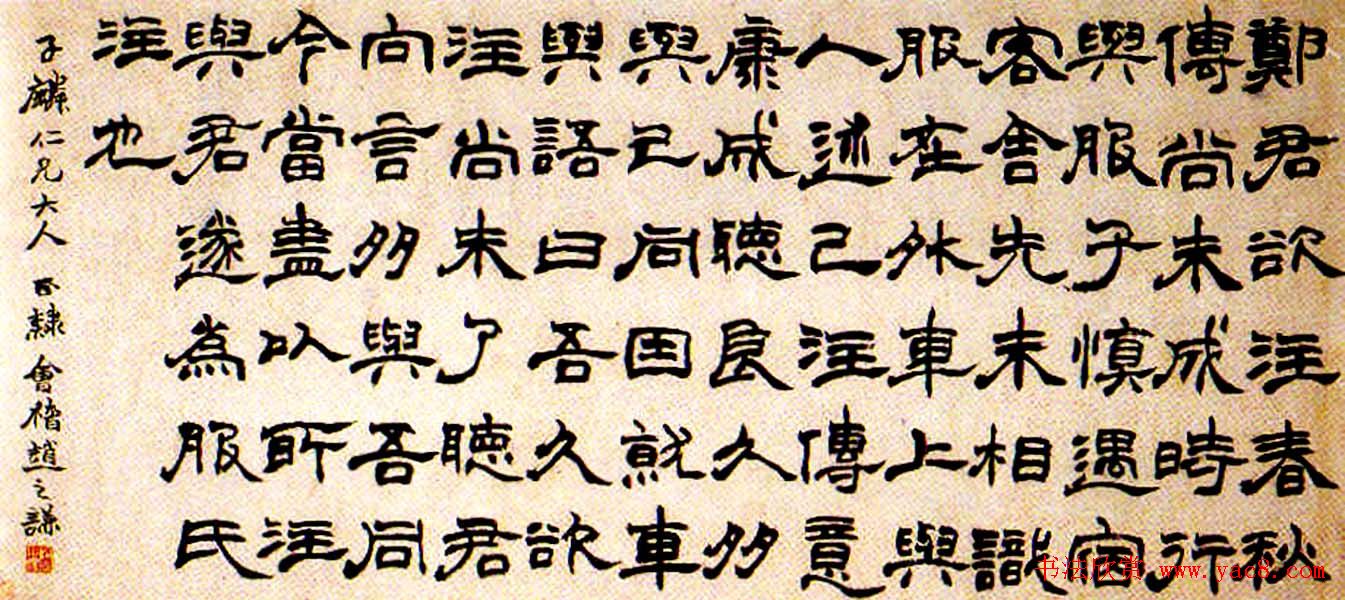 鄭君欲注春秋
傳尚未成時行
與服子慎遇宿
客舍先未相識
服在外車上與
人述己注傳意
康成聽良久多
與己同因就車
與語曰吾久欲
注尚未了聽君
向言多與吾同
今當盡以所注
與君遂為服氏
注也
子麟仁兄大人正隸會稽趙之謙
书法欣赏 www.yac8.com